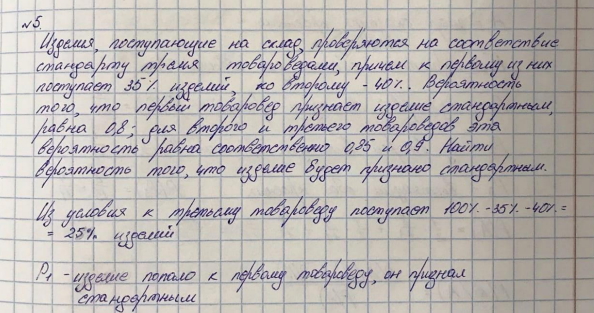 №5.
Изделия, поступающие на склад, проверяются на соответствие
стандарту тремя товароведами, причем к первому из них
поступает 35% изделий, ко второму - 40%. Вероятность
того, что первый товаровед признает изделие стандартным,
равна 0,8; для второго и третьего товароведов эта
вероятность равна соответственно 0,85 и 0,9. Найти
вероятность того, что изделие будет признано стандартным.
Из условия к третьему товароведу поступает 100% -35% -40% =
= 25% изделий
P₁ - изделие попало к первому товароведу, он признал
стандартным